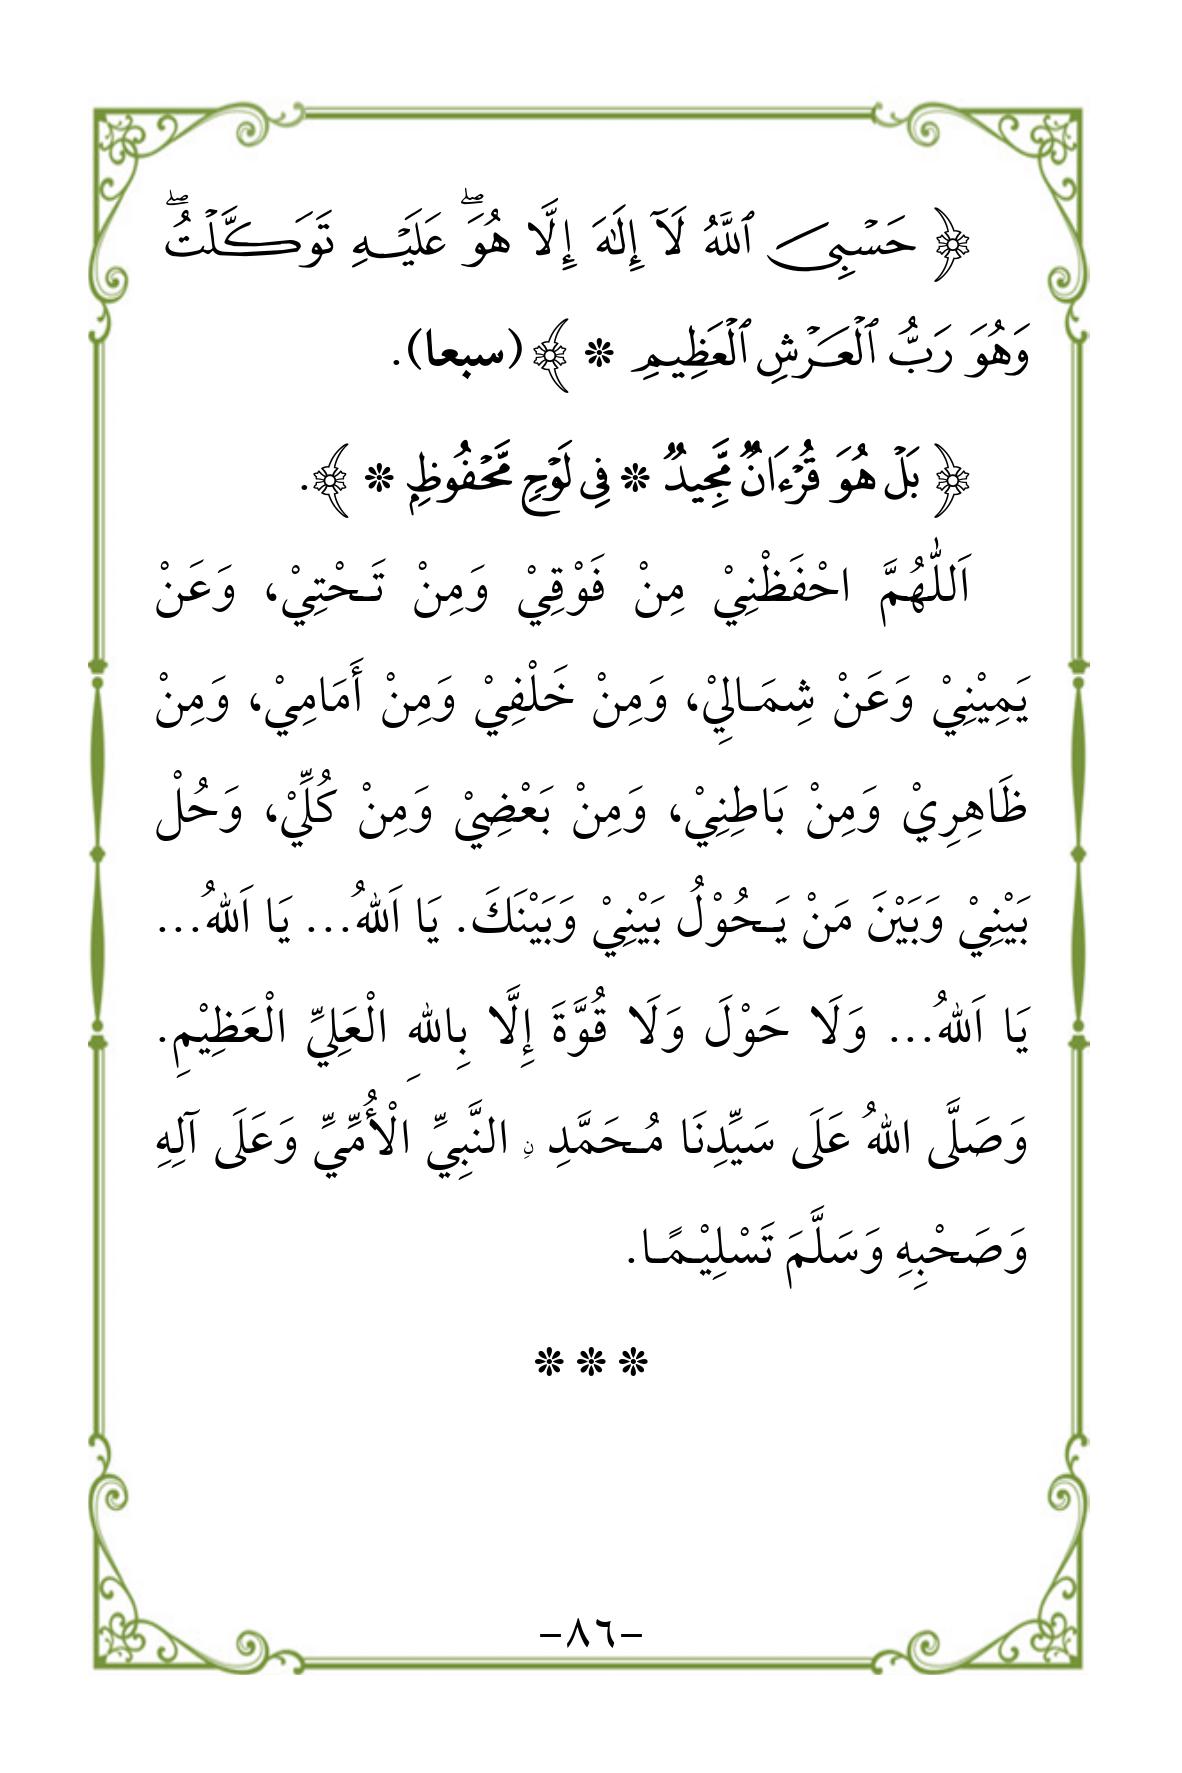 ﴿ حَسْبِىَ ٱللَّهُ لَآ إِلَٰهَ إِلَّا هُوَۖ عَلَيْهِ تَوَكَّلْتُۖ
وَهُوَ رَبُّ ٱلْعَرْشِ ٱلْعَظِيمِ * ﴾ (سبعا).
﴿ بَلْ هُوَ قُرْءَانٌ مَّجِيدٌ * فِى لَوْحٍ مَّحْفُوظٍۭ * ﴾.
اَللّٰهُمَّ احْفَظْنِيْ مِنْ فَوْقِيْ وَمِنْ تَحْتِيْ، وَعَنْ
يَمِيْنِيْ وَعَنْ شِمَالِيْ، وَمِنْ خَلْفِيْ وَمِنْ أَمَامِيْ، وَمِنْ
ظَاهِرِيْ وَمِنْ بَاطِنِيْ، وَمِنْ بَعْضِيْ وَمِنْ كُلِّيْ، وَحُلْ
بَيْنِيْ وَبَيْنَ مَنْ يَحُوْلُ بَيْنِيْ وَبَيْنَكَ. يَا اَللهُ... يَا اَللهُ...
يَا اَللهُ... وَلَا حَوْلَ وَلَا قُوَّةَ إِلَّا بِاللهِ الْعَلِيِّ الْعَظِيْمِ.
وَصَلَّى اللهُ عَلَى سَيِّدِنَا مُحَمَّدِ نِ النَّبِيِّ الْأُمِّيِّ وَعَلَى آلِهِ
وَصَحْبِهِ وَسَلَّمَ تَسْلِيْمًا.
* * *
-٨٦-